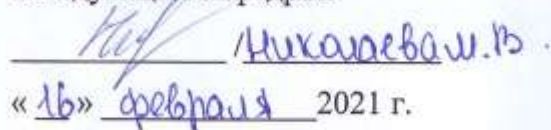 /Николаева М.В.
«16» февраля 2021 г.